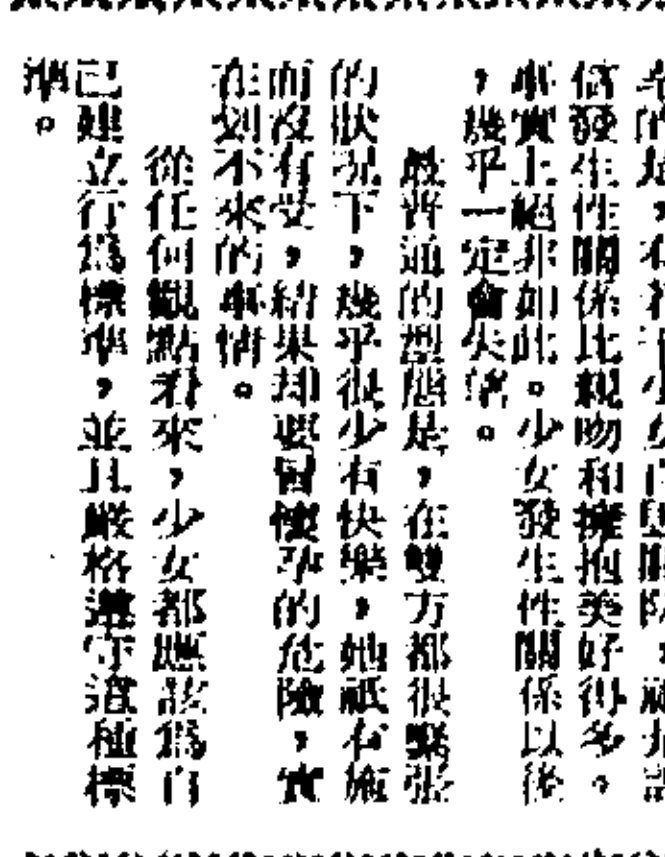 信發生性關係比親吻和擁抱美好得多。
事實上絕非如此。少女發生性關係以後
，幾乎一定會失望。
般普通的型態是，在雙方都很緊張
的狀況下，幾乎很少有快樂，她祇有施
而沒有受，結果却要冒懷孕的危險，實
在划不來的事情。
從任何觀點看來，少女都應該為自
己建立行為標準，並且嚴格遵守這種標
準。